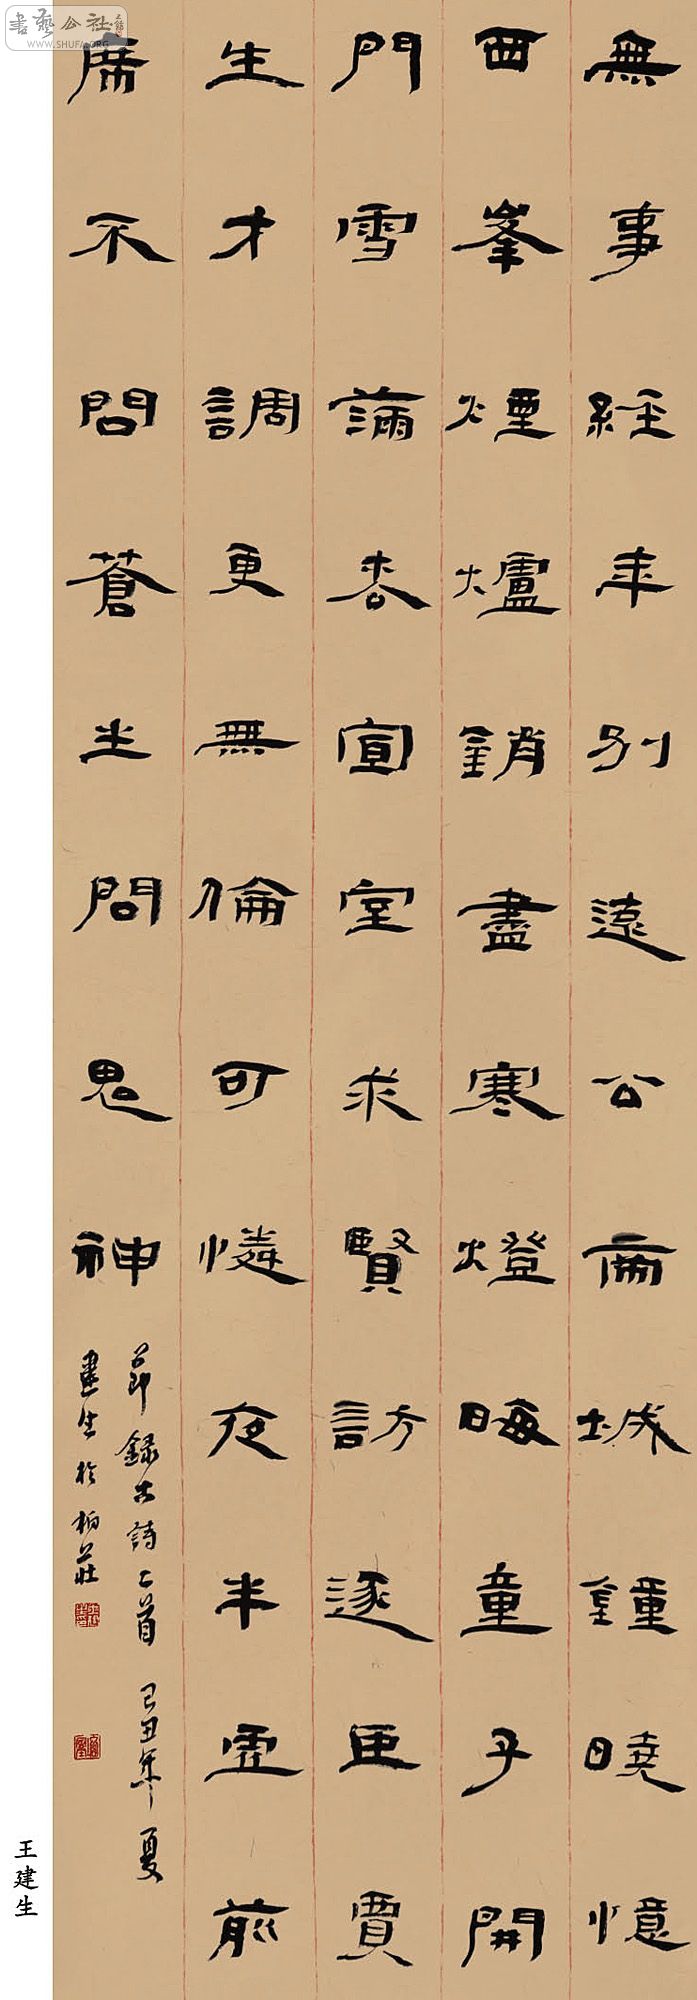 無事經年別遠公帝城鐘曉憶
西峯煙爐銷盡寒燈晦童子開
門雪滿枩宣室求賢訪逐臣賈
生才調更無倫可憐夜半虛前
席不問蒼生問鬼神
節錄古詩二首 己丑年夏
建生於柏莊
王建生
書藝公社
WWW.SHUFA.ORG